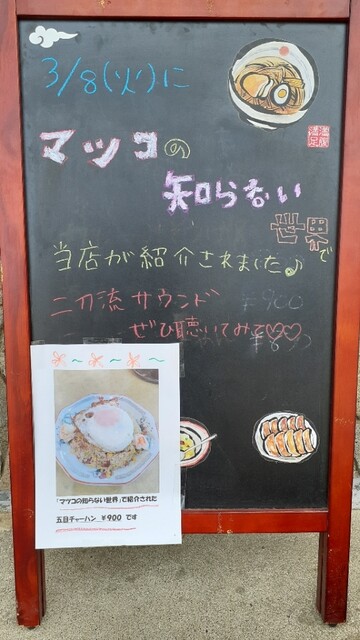 3/8(火)に
マツコの
知らない
世界で
当店が紹介されました♪
二刀流サウンド
¥900
ぜひ聴いてみて♡♡
「マツコの知らない世界」で紹介された
五目チャーハン ¥900 です